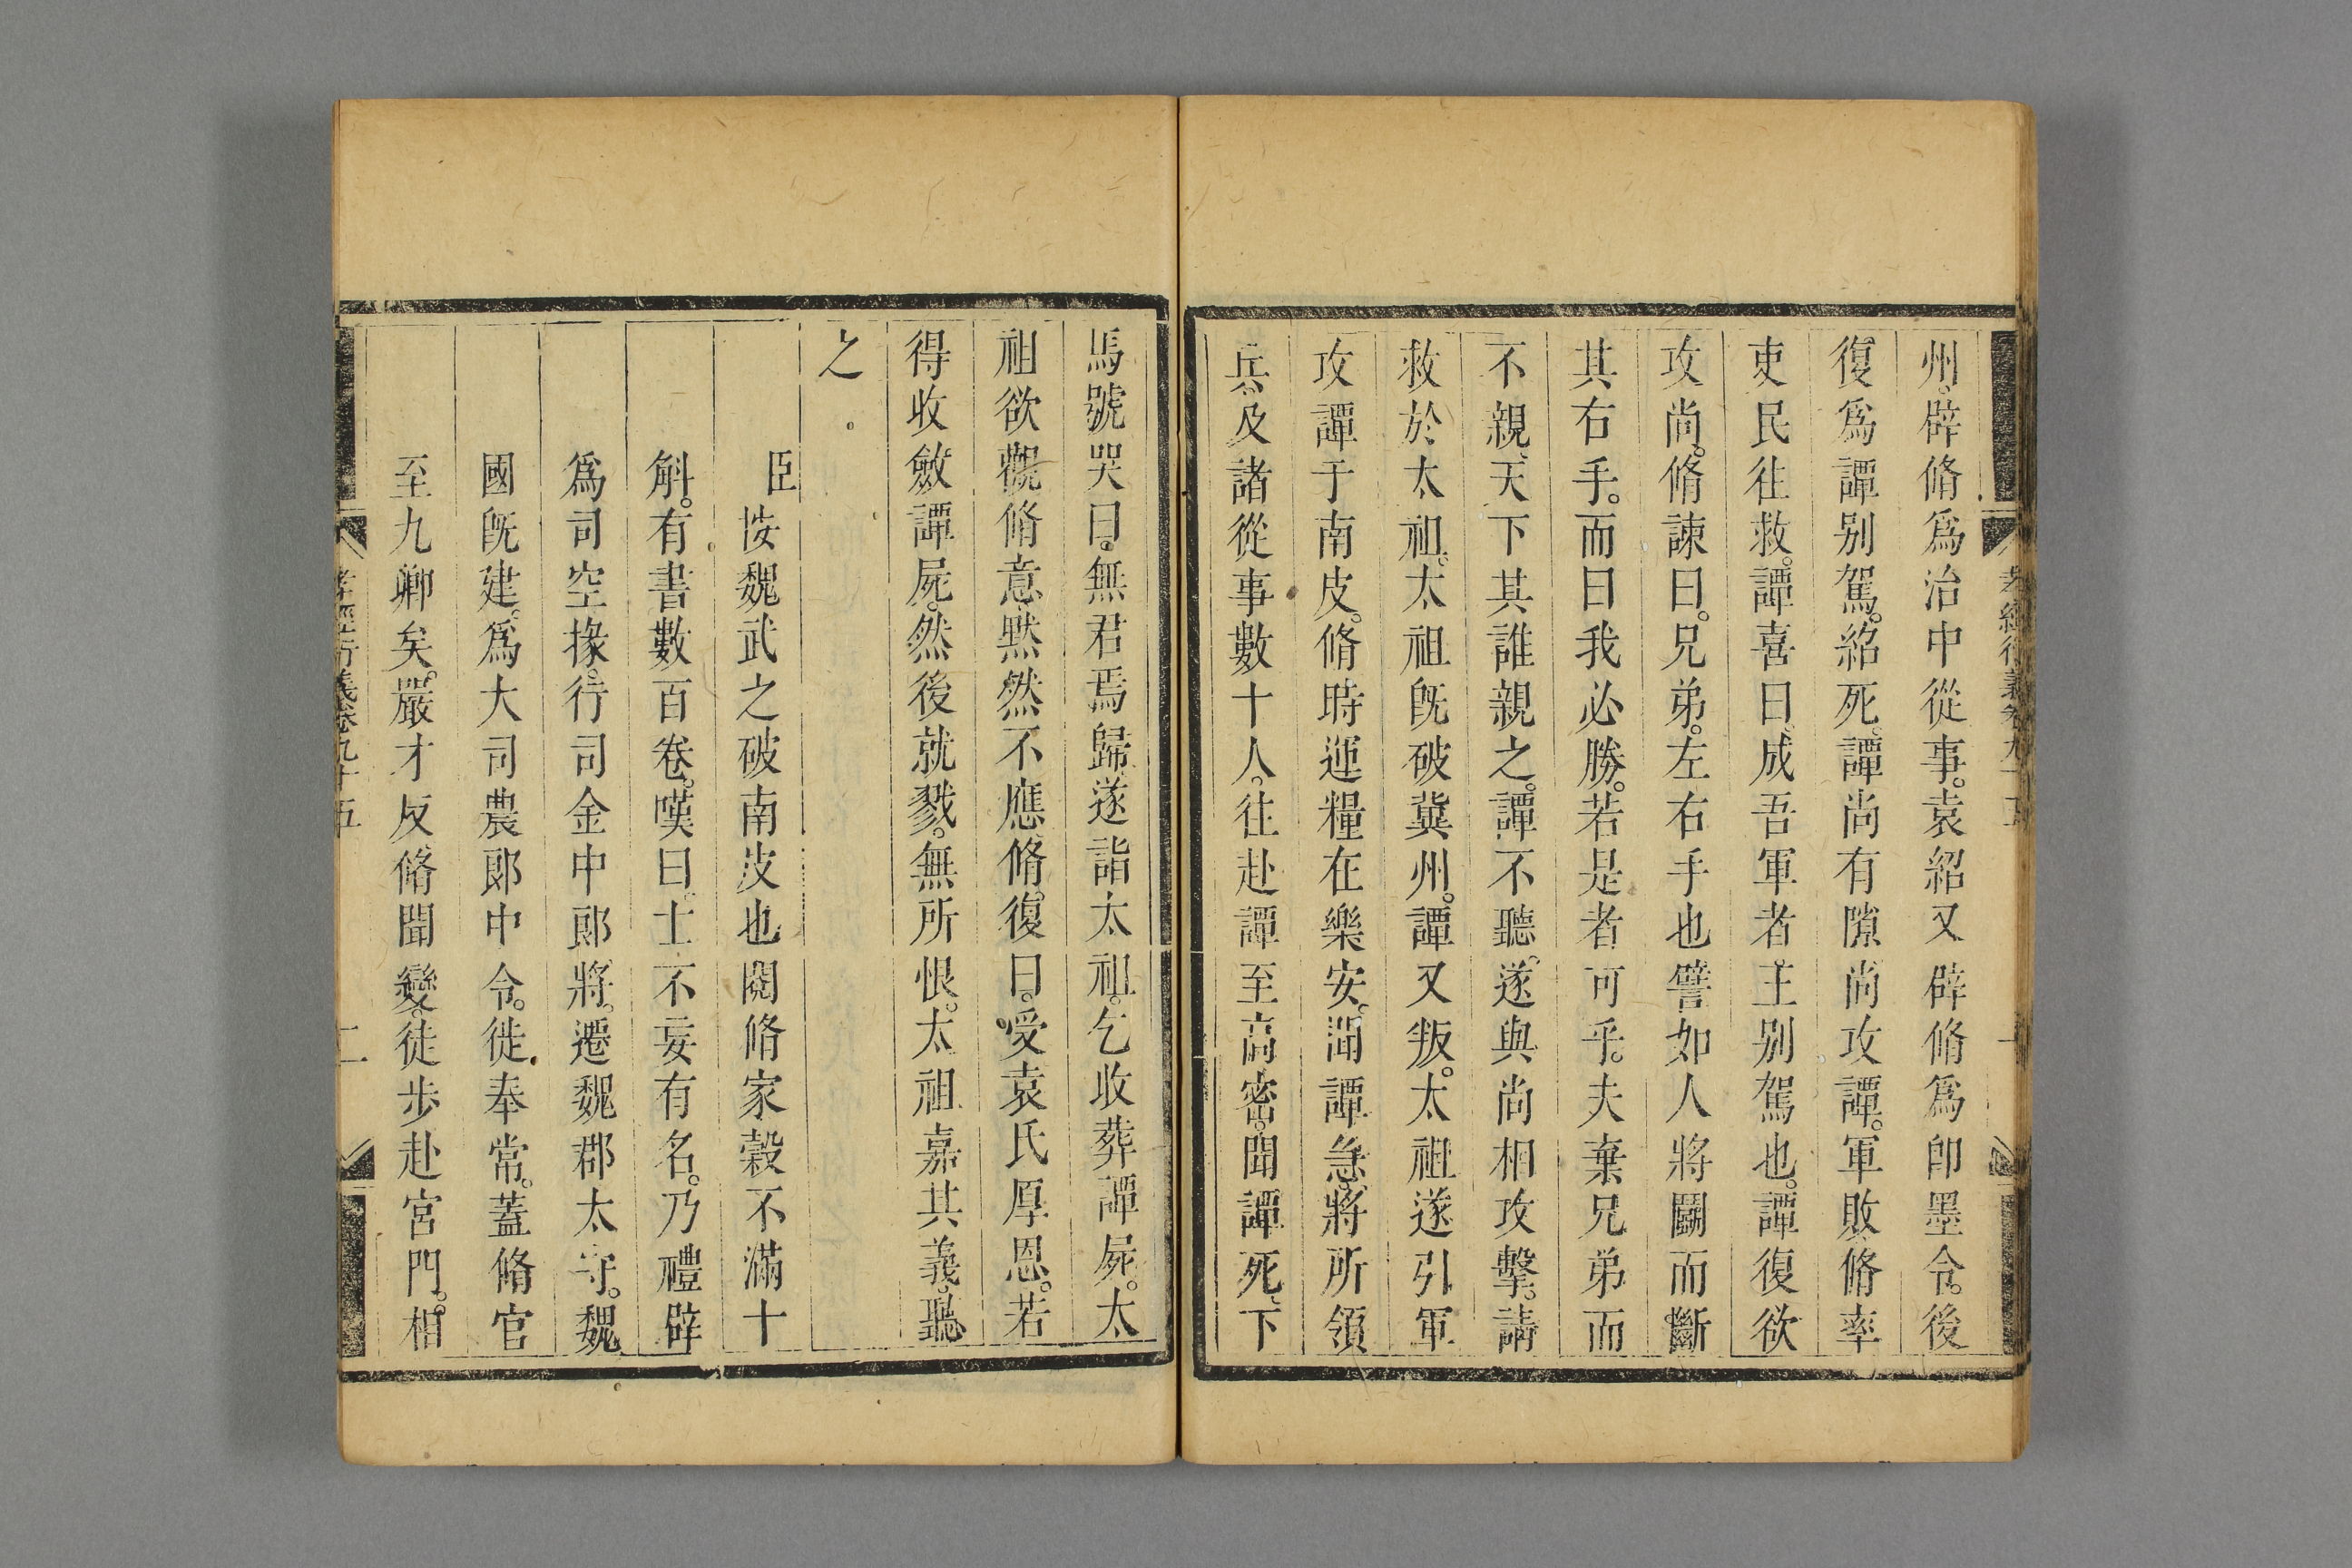 州。辟脩爲治中從事。袁紹又辟脩爲卽墨令。後
復爲譚别駕。紹死、譚尚有隙、尚攻譚。軍敗、脩率
吏民往救。譚喜曰、成吾軍者、王别駕也。譚復欲
攻尚。脩諫曰。兄弟。左右手也、譬如人將鬭而斷
其右手。而曰我必勝。若是者可乎。夫棄兄弟而
不親、天下其誰親之。譚不聽。遂與尚相攻擊。請
救於太祖。太祖旣破冀州。譚又叛。太祖遂引軍
攻譚于南皮。脩時運糧在樂安。聞譚急、將所領
兵及諸從事數十人。往赴譚至高密。聞譚死、下
馬號哭曰。無君焉歸、遂詣太祖。乞收葬譚屍。太
祖欲觀脩意、黙然不應、脩復曰。受袁氏厚恩。若
得收斂譚屍。然後就戮。無所恨。太祖嘉其義。聽
之。
臣按魏武之破南皮也閱脩家榖不滿十
斛。有書數百卷。嘆曰、士不妄有名。乃禮辟
爲司空掾。行司金中郎將。遷魏郡太守。魏
國旣建。爲大司農郎中令。徙奉常。蓋脩官
至九卿矣。嚴才反、脩聞變。徒步赴宮門。相
孝經衍義卷九十五
二